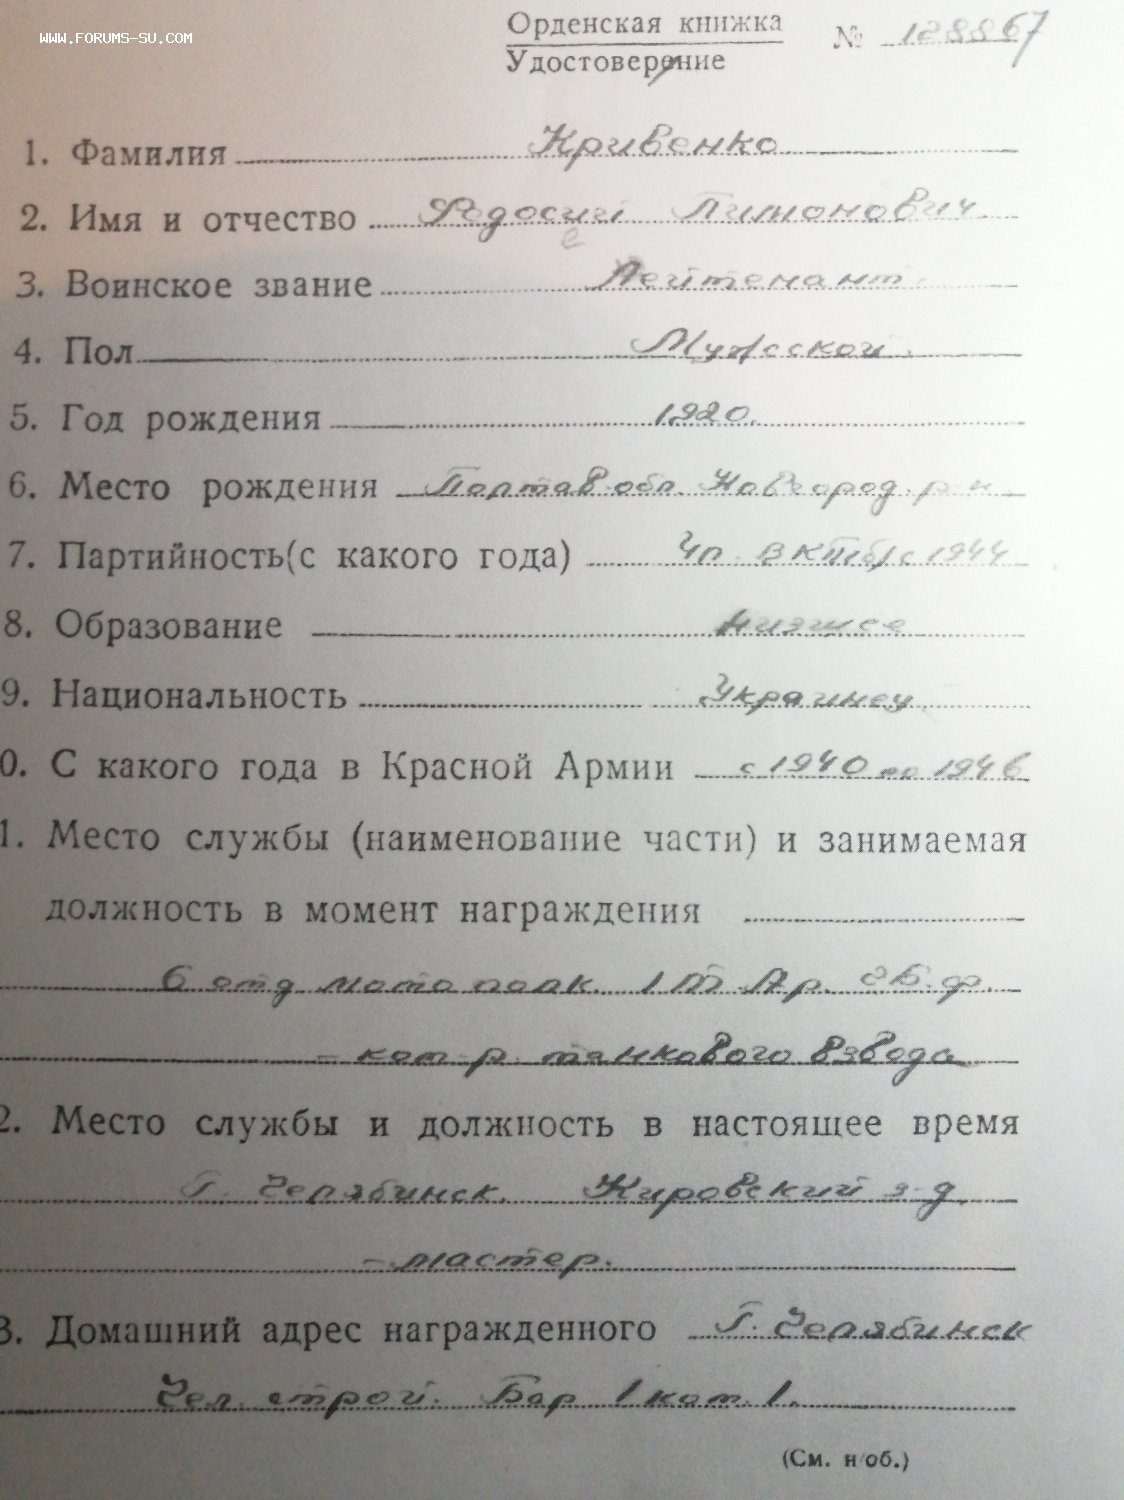 WWW.FORUMS-SU.COM
Орденская книжка № 128867
Удостоверение
1. Фамилия Кривенко
2. Имя и отчество Федосий Пимонович
е
3. Воинское звание Лейтенант
4. Пол Мужской
5. Год рождения 1920.
6. Место рождения Полтав. обл. Новгород. р-н
7. Партийность (с какого года) Чл. ВКП(б) с 1944
8. Образование низшее
9. Национальность Украинец
0. С какого года в Красной Армии с 1940 по 1946
1. Место службы (наименование части) и занимаемая
должность в момент награждения
6 отд мото полк. 1 П Пр. ф.
- ком-р. танкового взвода
2. Место службы и должность в настоящее время
г. Челябинск. Кировский з-д.
- мастер.
3. Домашний адрес награжденного г. Челябинск
Чел. строй. Бар 1 ком. 1.
(См. н/об.)